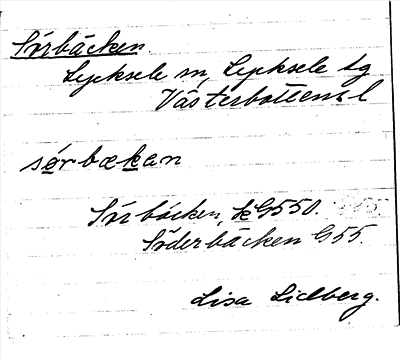 Sörbäcken.
Lycksele sn, Lycksele tg
Västerbottens l
sørbækan
Sörbäcken, kG550.
Söderbäcken G55.
Lisa Lidberg.